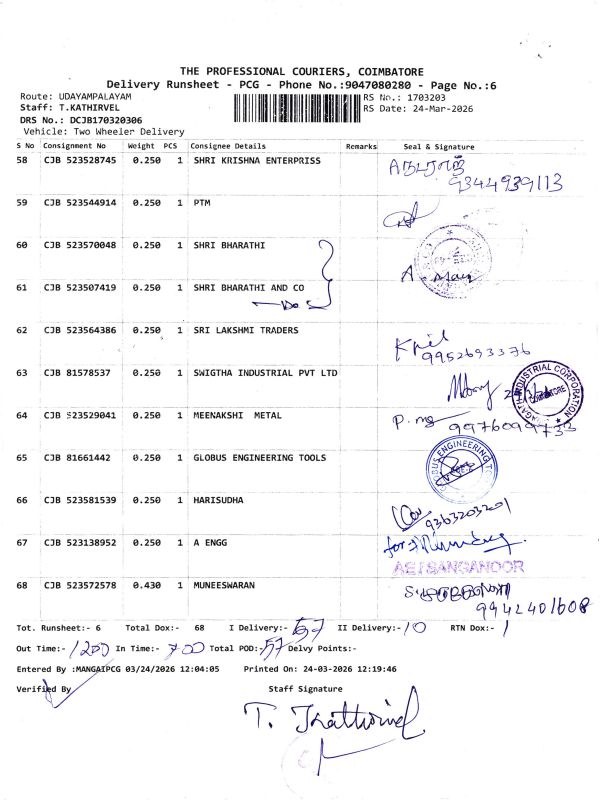 THE PROFESSIONAL COURIERS, COIMBATORE
Delivery Runsheet - PCG - Phone No.:9047080280 - Page No.:6
Route: UDAYAMPALAYAM
RS No.: 1703203
Staff: T.KATHIRVEL
RS Date: 24-Mar-2026
DRS No.: DCJB170320306
Vehicle: Two Wheeler Delivery
S No Consignment No Weight PCS Consignee Details Remarks Seal & Signature
58 CJB 523528745 0.250 1 SHRI KRISHNA ENTERPRISS
9344939113
59 CJB 523544914 0.250 1 PTM
60 CJB 523570048 0.250 1 SHRI BHARATHI
61 CJB 523507419 0.250 1 SHRI BHARATHI AND CO
62 CJB 523564386 0.250 1 SRI LAKSHMI TRADERS
9952693376
63 CJB 81578537 0.250 1 SWIGTHA INDUSTRIAL PVT LTD
INDUSTRIAL CORPORATION
64 CJB 523529041 0.250 1 MEENAKSHI METAL
9976099733
65 CJB 81661442 0.250 1 GLOBUS ENGINEERING TOOLS
66 CJB 523581539 0.250 1 HARISUDHA
9363203201
67 CJB 523138952 0.250 1 A ENGG
68 CJB 523572578 0.430 1 MUNEESWARAN
9942401608
Tot. Runsheet:- 6 Total Dox:- 68 I Delivery:- 57 II Delivery:- 10 RTN Dox:- 1
Out Time:- 1200 In Time:- 700 Total POD:- 57 Delvy Points:-
Entered By :MANGAIPCG 03/24/2026 12:04:05 Printed On: 24-03-2026 12:19:46
Verified By Staff Signature
T. Kathirvel